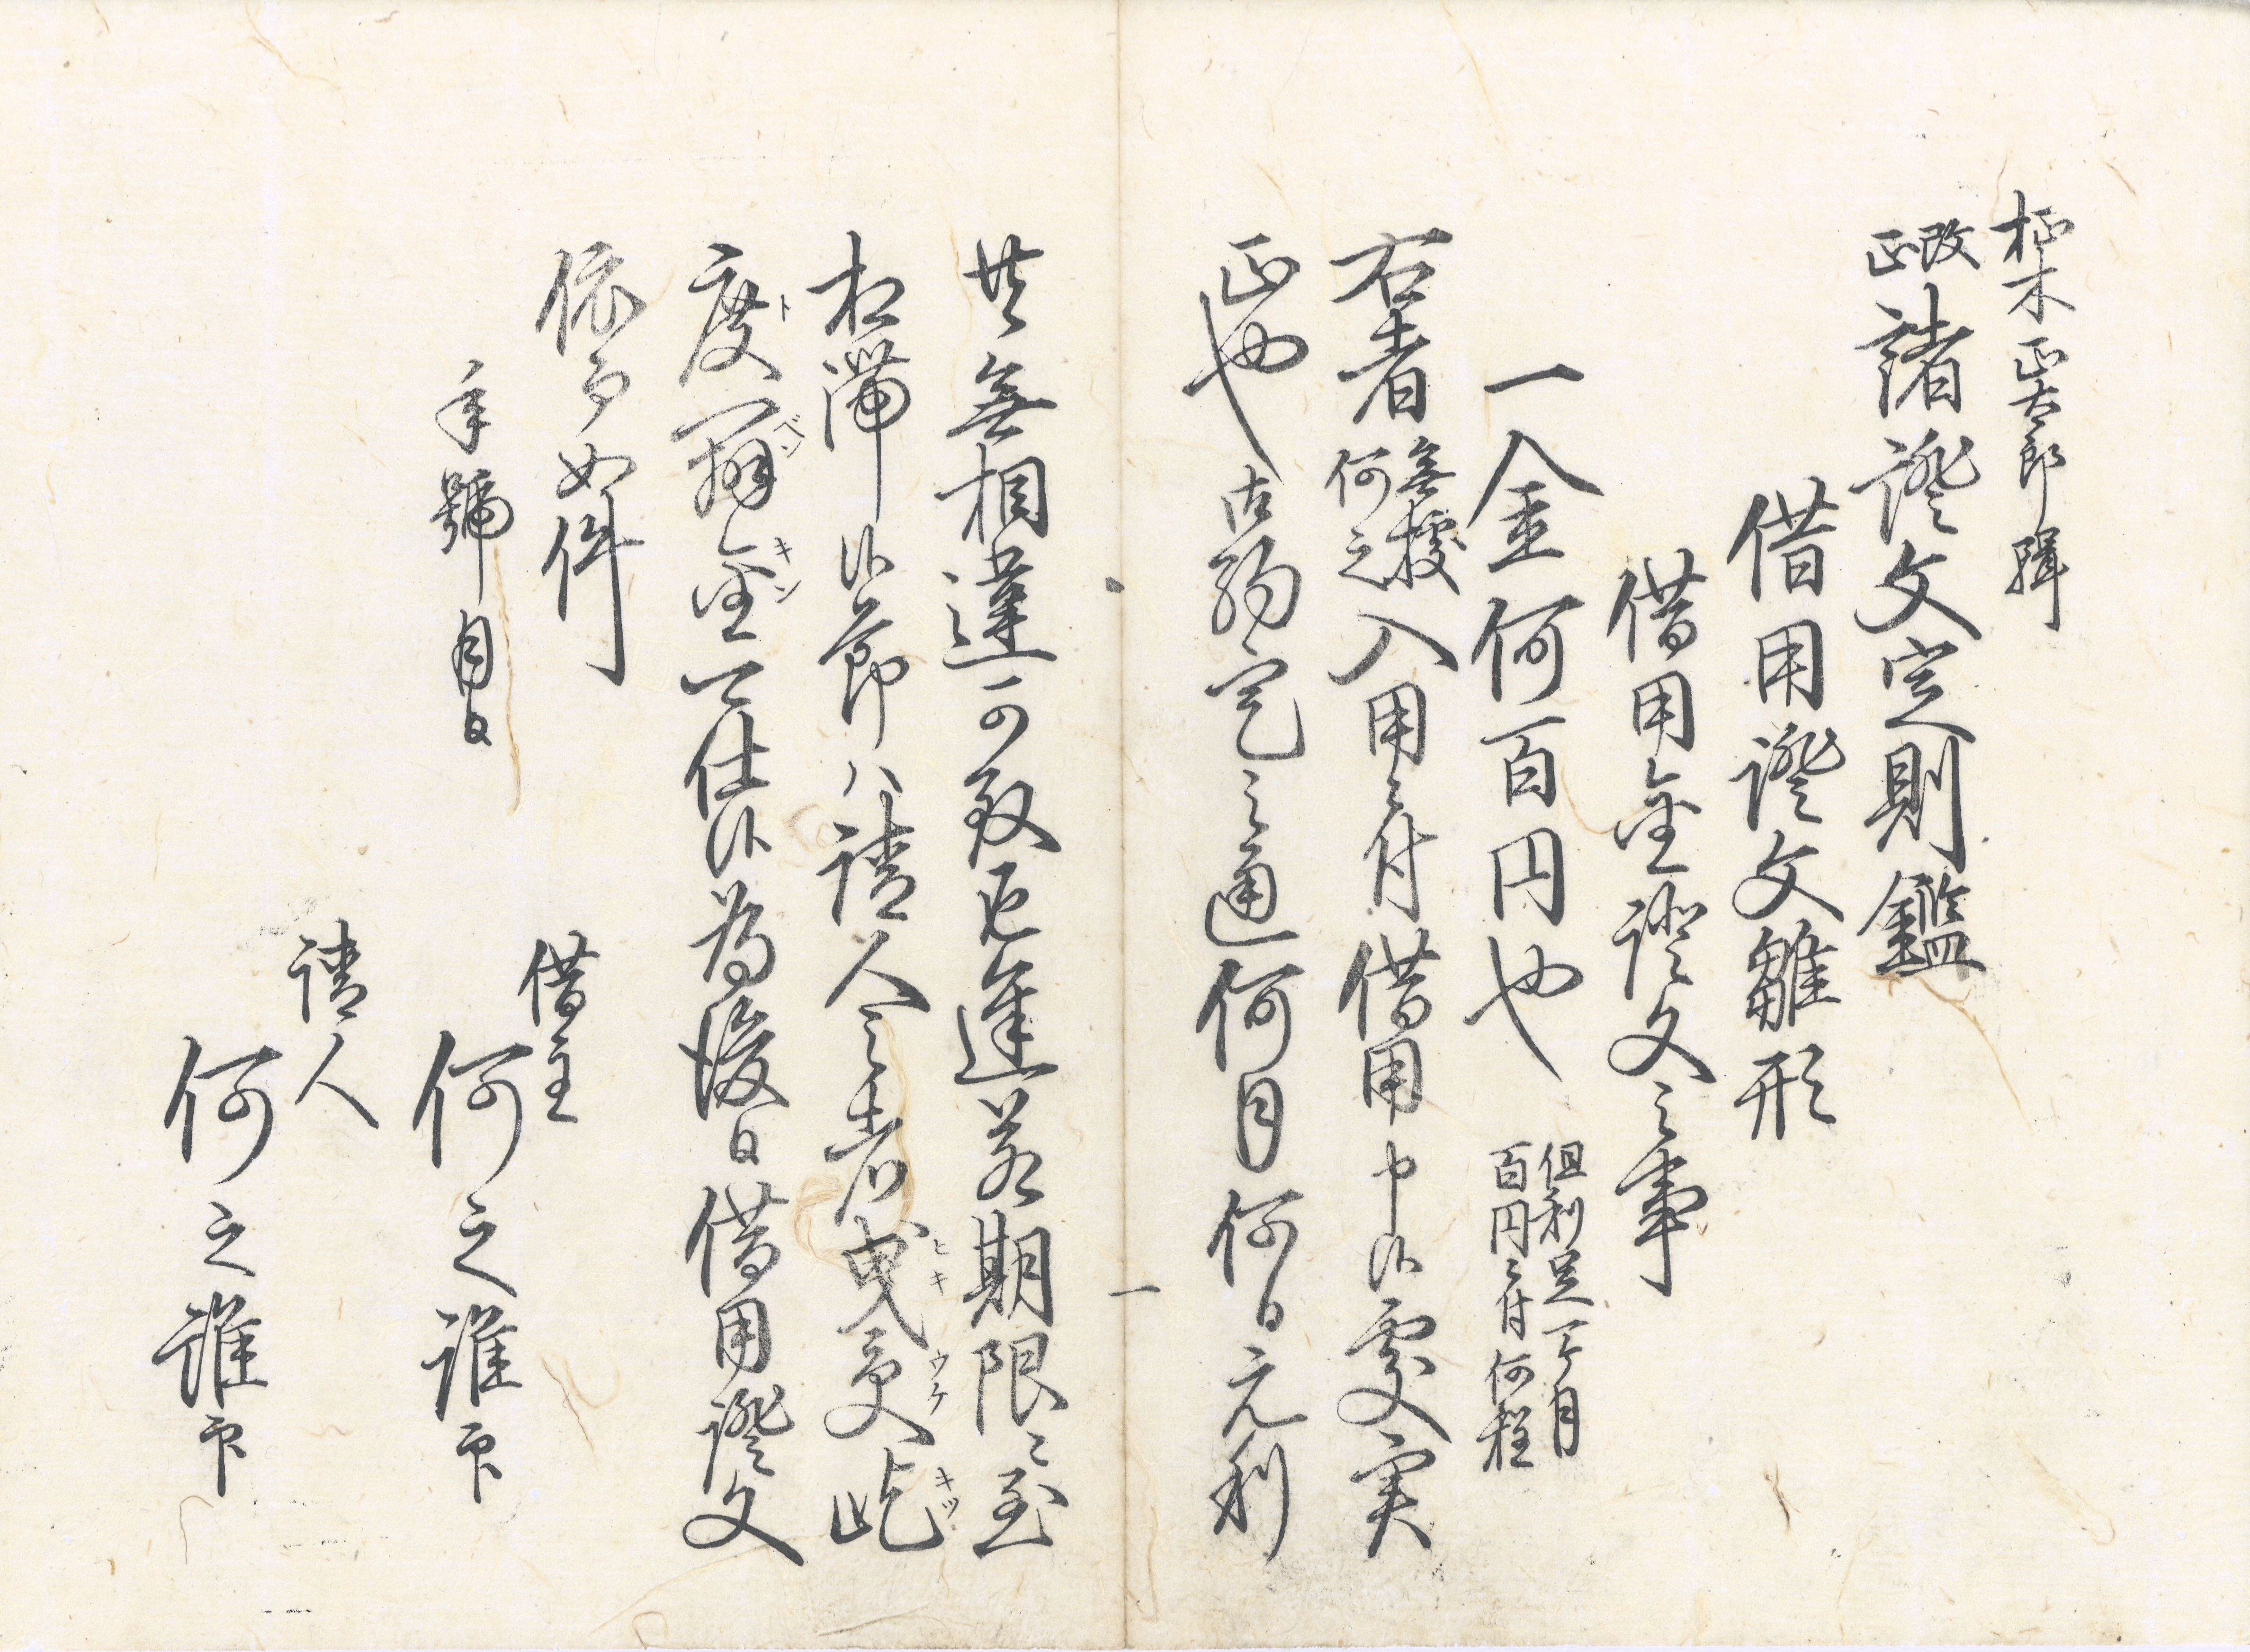 柾木正太郎輯
改正諸證文定則鑑
借用證文雛形
借用金證文之事
一金何百円也 但利足一ケ月百円ニ付何程
右者無據何之入用ニ付借用申候處実
正也
約定之通何月何日元利
共無相違可致返進若期限ニ至
相滞候節ハ請人之者曳受屹
ヒキ ウケ キツ
度辨金可仕候為後日借用證文
ト ベン キン
依而如件
年號月日
借主
何之誰印
請人
何之誰印
一